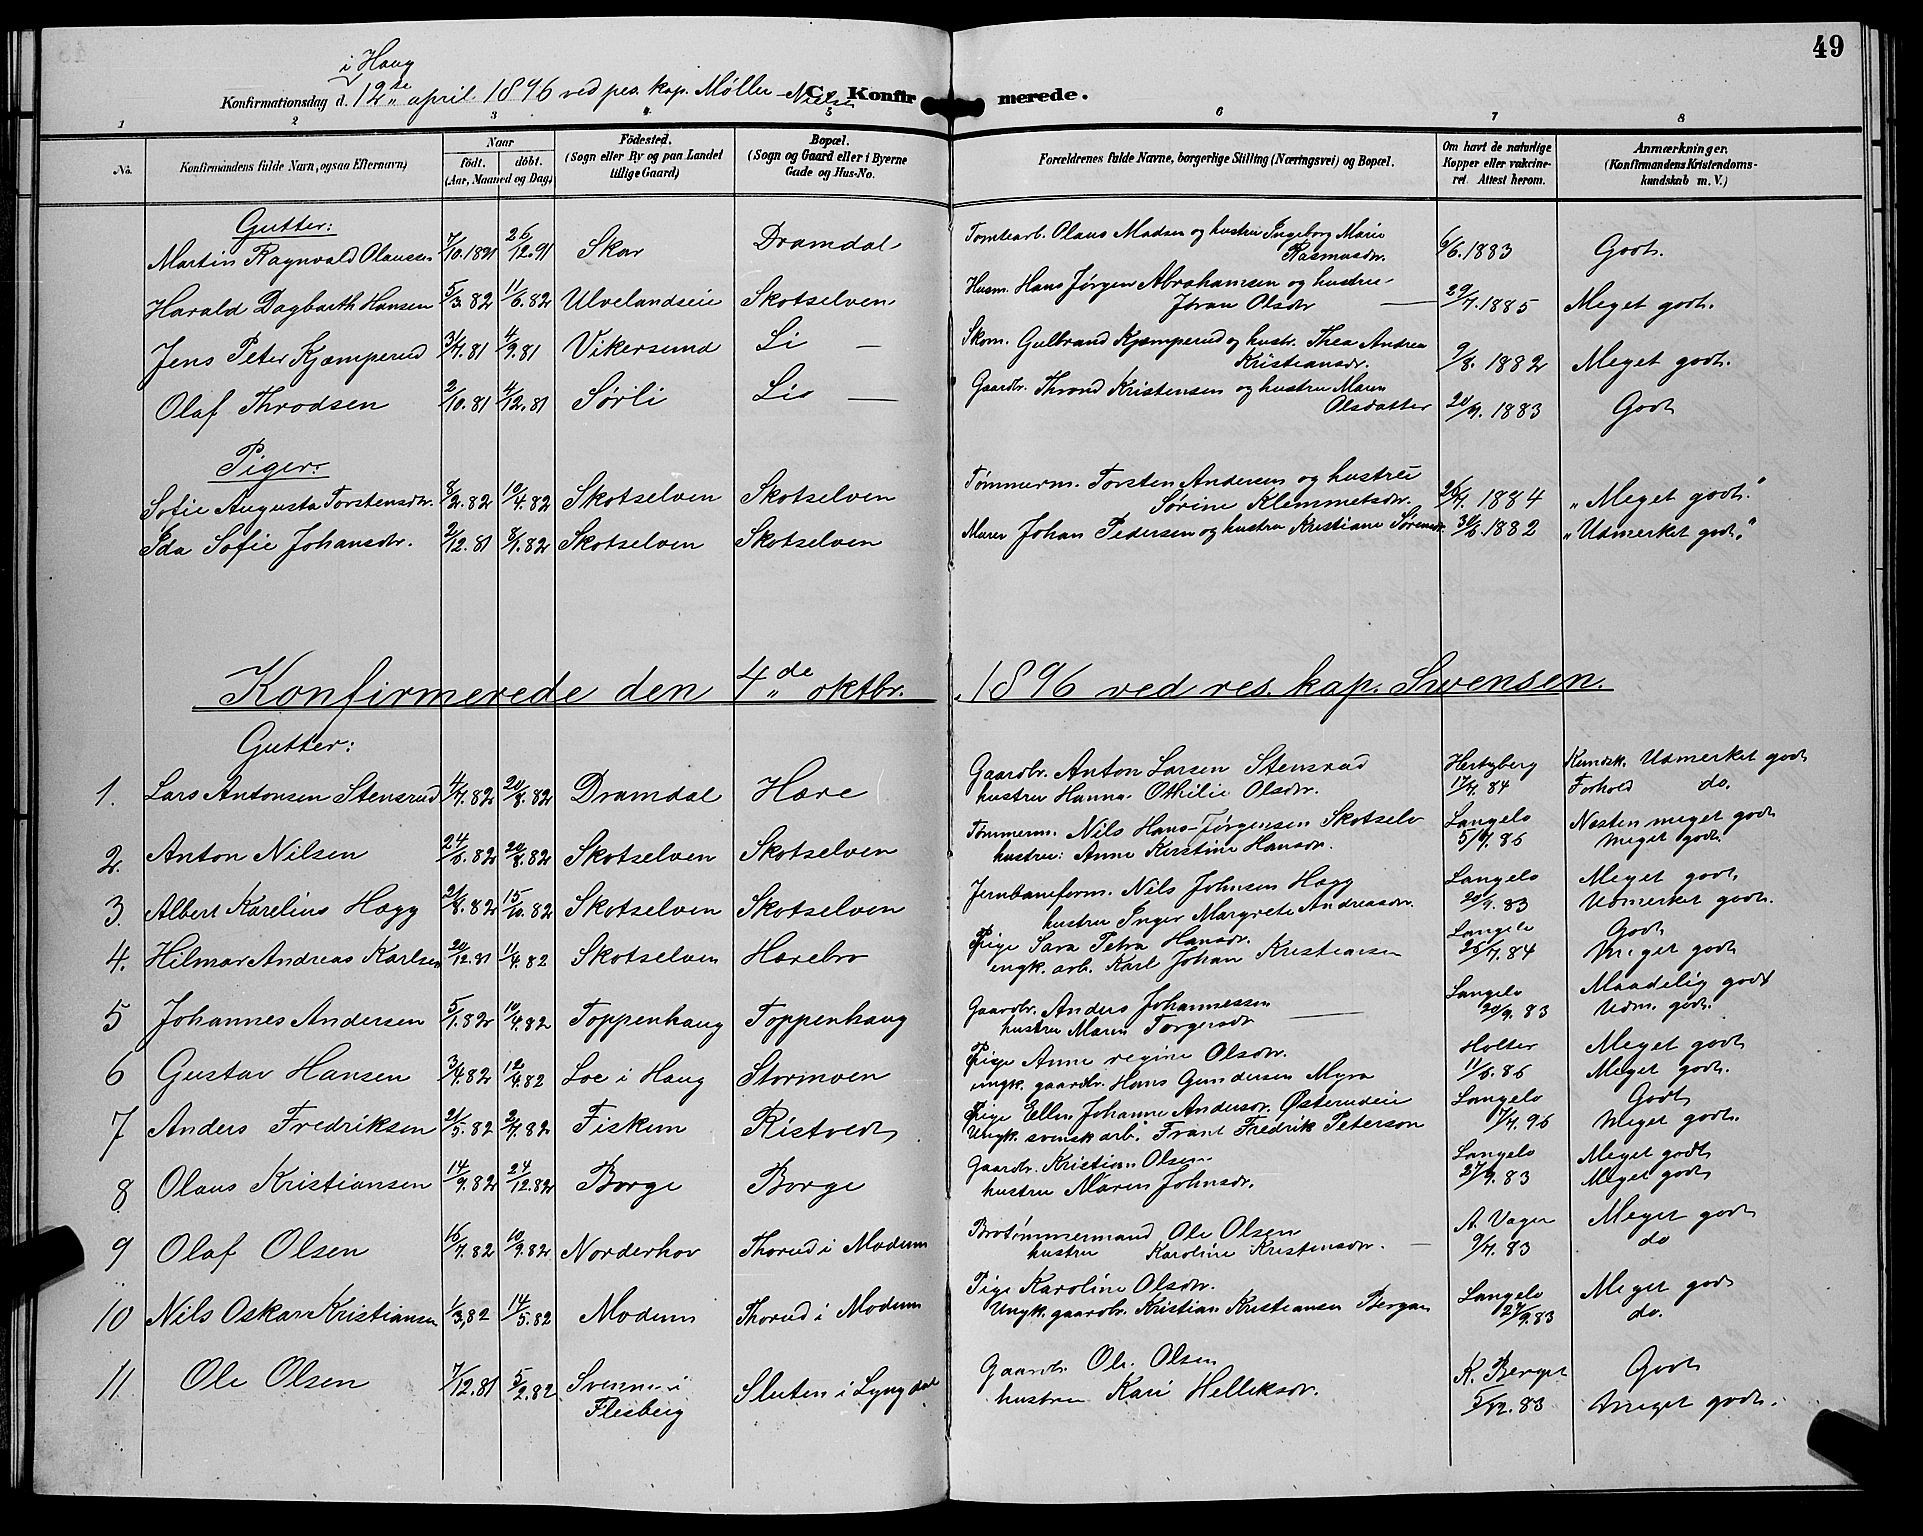 49
i Haug
Konfirmationsdag d. 12te april 1896 ved pes. kap. Møller-Nielsen
C. Konfirmerede.
1 2 3 4 5 6 7 8
No. Konfirmandens fulde Navn, ogsaa Efternavn) Naar födt. döbt. (Aar, Maaned og Dag) Födested. (Sogn eller By og paa Landet tillige Gaard) Bopæl. (Sogn og Gaard eller i Byerne Gade og Hus-No. Forældrenes fulde Navne, borgerlige Stilling (Næringsvei) og Bopæl. Om havt de naturlige Kopper eller vakcineret. Attest herom. Anmærkninger. (Konfirmandens Kristendomskundskab m. V.)
Gutter:
Martin Ragnvald Olaussen 7/10.1891 26/12.91 Skar Dramdal Tomtearb. Olaus Madsen og hustru Ingeborg Marie Rasmusdr. 6/6.1883 Godt.
Harald Dagbarth Hansen 5/3.82 11/6.82 Ulvelandseie Skotselven Husm. Hans Jørgen Abrahamsen og hustru Jøran Olsdr 29/7.1885 Meget godt.
Jens Peter Kjæmperud 3/7.81 4/9.81 Vikersund Li — Skom. Gulbrand Kjæmperud og hustr. Thea Andrea Kristiansdr. 9/8.1882 Meget godt.
Olaf Throdsen 2/10.81 4/12.81 Sørli Lia — Gaardbr. Thrond Kristensen og hustru Maren Olsdatter 20/9.1883 Godt
Piger:
Sofie Augusta Torstensdr. 8/2.82 10/4.82 Skotselven Skotselven Tømmerm. Torsten Andersen og hustru Sørine Klemmetsdr. 26/9.1884 "Meget godt."
Ida Sofie Johansdr. 2/12.81 8/1.82 Skotselven Skotselven Murer Johan Pedersen og hustru Kristiane Sørensdr. 30/6.1882 "Udmerket godt."
Konfirmerede den 4de oktbr. 1896 ved res. kap. Svensen.
Gutter:
1. Lars Antonsen Stensrud 4/7.82 20/8.82 Dramdal Hære Gaardbr. Anton Larsen Stensrud hustru Hanna Othilie Olsdr. Hertzberg 17/9.84 Kundsk. Udmerket godt Forhold do.
2. Anton Nilsen 24/6.82 20/8.82 Skotselven Skotselven Tømmerm. Nils Hans-Jørgensen Skotselv hustru: Anne Kerstine Hansdr. Langelo 5/9.86 Næsten meget godt Meget godt.
3 Albert Karelius Hagg 21/8.82 15/10.82 Skotselven Skotselven Jernbaneform. Nils Johnsen Hagg hustru Inger Margrete Andreasdr. Langelo 20/9.83 Meget godt, Udmerket godt.
4. Hilmar Andreas Karlsen 20/12.81 11/4.82 Skotselven Hærebro Pige Sara Petra Hansdr. ungk. arb. Karl Johan Kristiansen Langelo 26/7.84 Godt Meget godt
5 Johannes Andersen 5/1.82 10/4.82 Toppenhaug Toppenhaug Gaardbr. Anders Johannessen hustru Maren Torgersdr Langelo 20/9.83 Maadelig godt Udm. godt.
6 Gustav Hansen 3/4.82 12/4.82 Loe i Haug Stormoen Pige Anne regine Olsdr. ungk. gaardbr. Hans Gundersen Myra Holter 11/6.86 Meget godt Meget godt.
7 Anders Fredriksen 21/5.82 2/7.82 Fiskum Ristvedt Pige Ellen Johanne Andersdr. Østerudeie Ungk. svensk arb. Frant Fredrik Peterson Langelo 7/7.96 Godt Meget godt.
8 Olaus Kristiansen 14/9.82 24/12.82 Borge Borge Gaardbr. Kristian Olsen. hustru Maren Johnsdr. Langelo 27/9.83 Meget godt Meget godt
9 Olaf Olsen 16/7.82 10/9.82 Norderhov Thorud i Modum Brotømmermand Ole Olsen hustru Karoline Kristensdr. A. Vager 9/7.83 Meget godt do
10 Nils Oskar Kristiansen 1/3,82 14/5.82 Modum Thorud i Modum Pige Karoline Olsdr. Ungk. gaardbr. Kristian Kristiansen Bergan Langelo 27/9.83 Meget godt do.
11 Ole Olsen 7/12.81 5/2.82 Svenne i Flesberg Sluten i Lyngdal Gaardbr. Ole Olsen hustru Kari Helliksdr. K. Berget 5/12.83 Godt Meget godt.